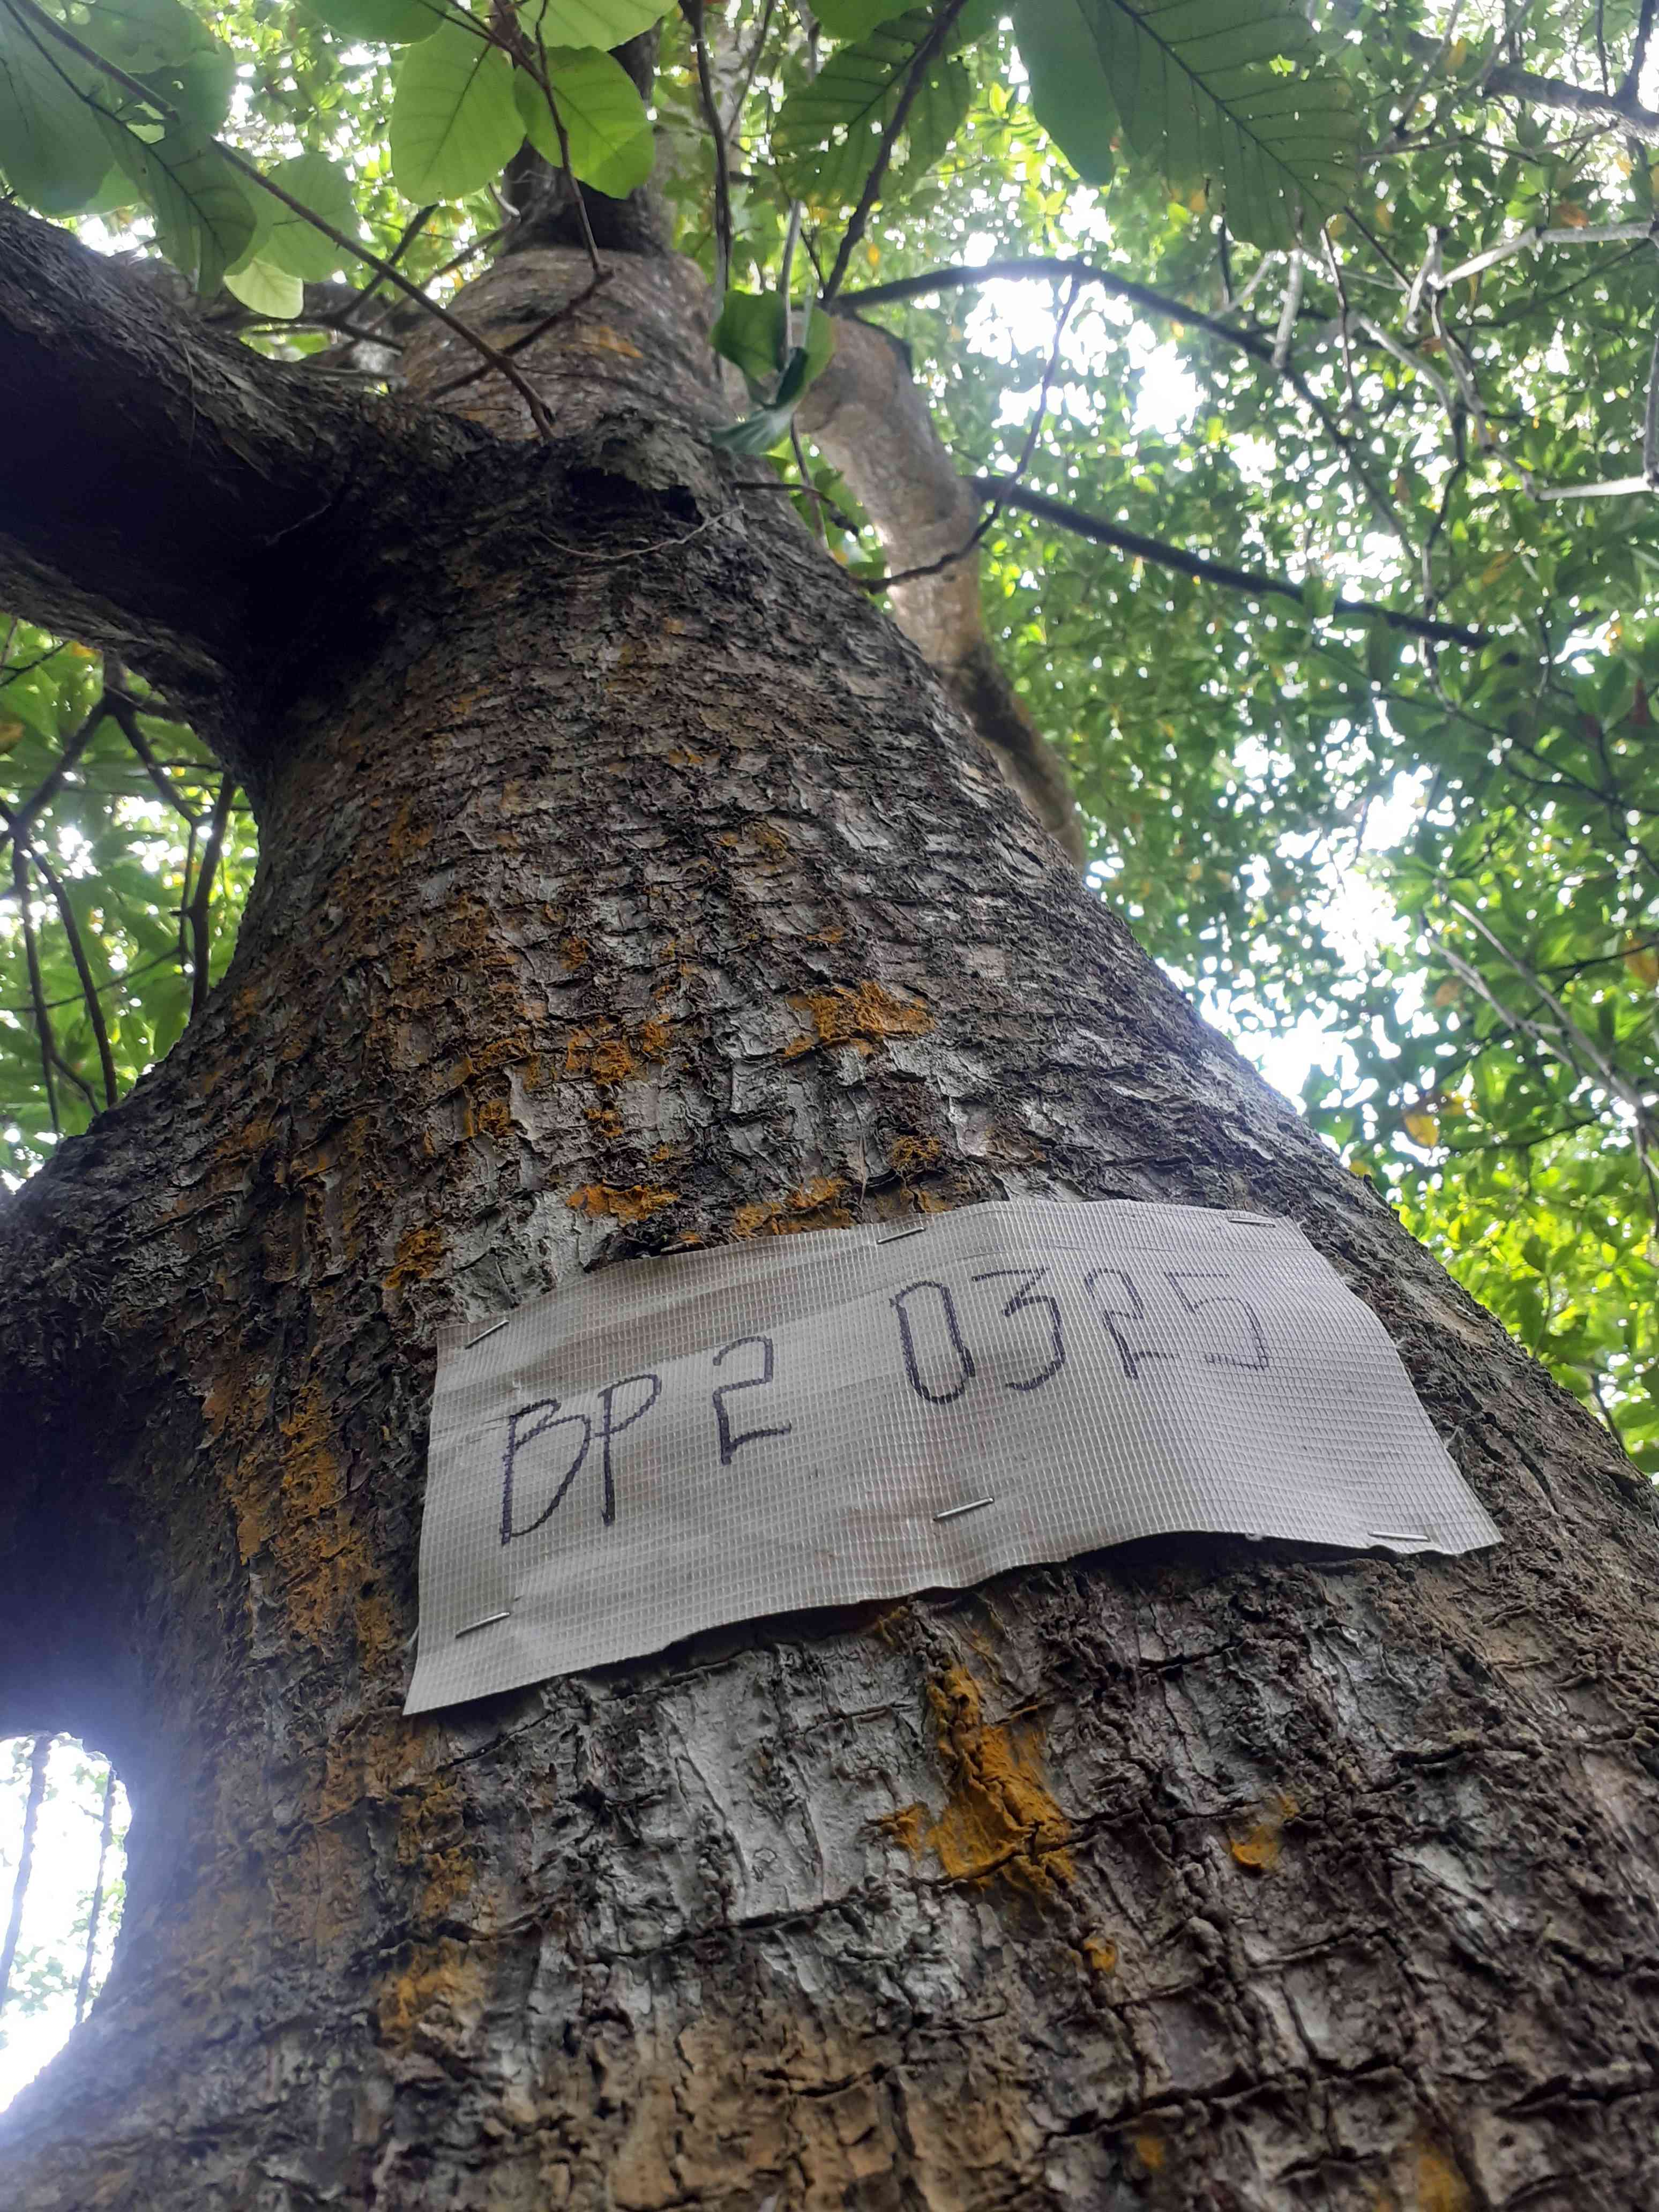 BP 2 0325